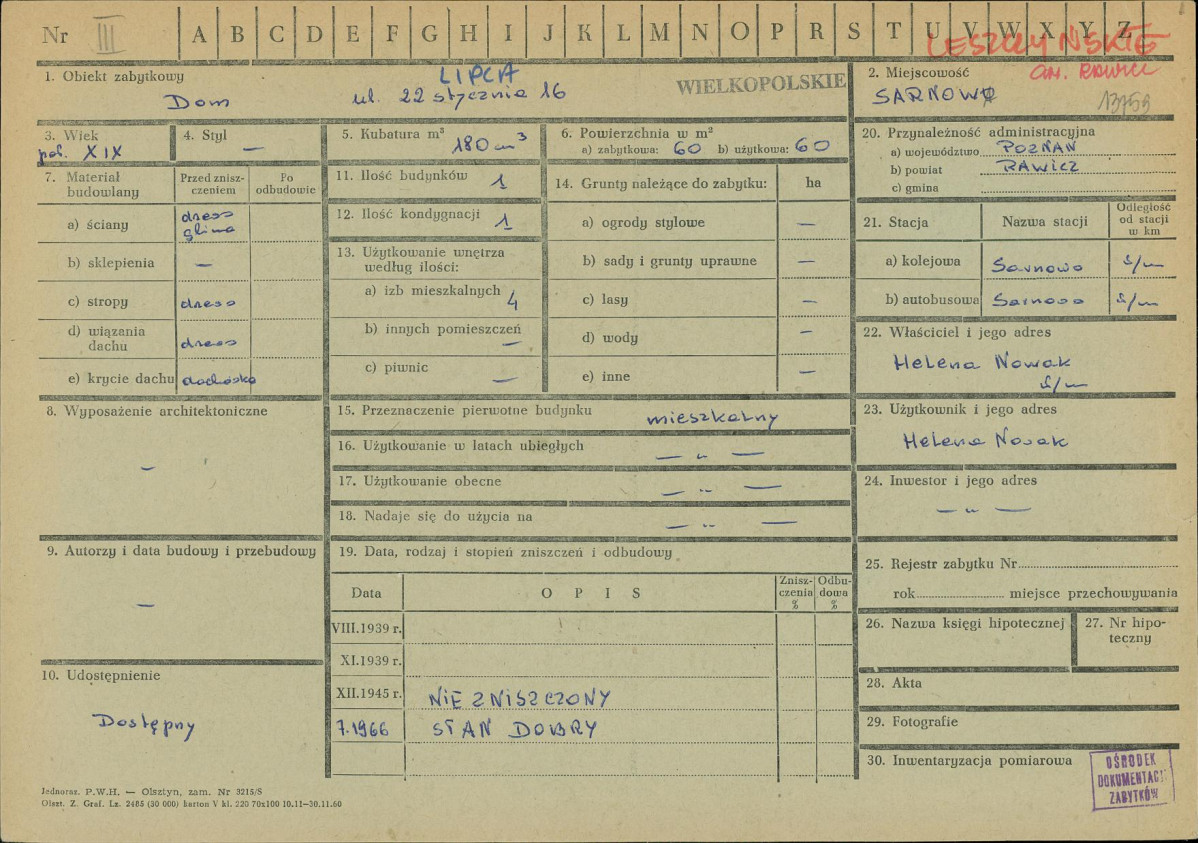 Nr III A B C D E F G H I J K L M N O P R S T U V W X Y Z
LESZCZYŃSKIE
gm. RAWICZ
13759
1. Obiekt zabytkowy
Dom
LIPCA
ul. 22 stycznia 16
WIELKOPOLSKIE
2. Miejscowość
SARNOWO
3. Wiek
poł. XIX
4. Styl
—
5. Kubatura m³
180 m³
6. Powierzchnia w m²
a) zabytkowa: 60 b) użytkowa: 60
7. Materiał budowlany
Przed znisz-
czeniem
Po
odbudowie
a) ściany
drewo
glina
b) sklepienia —
c) stropy drewo
d) wiązania
dachu drewo
e) krycie dachu dachówka
8. Wyposażenie architektoniczne
—
9. Autorzy i data budowy i przebudowy
—
10. Udostępnienie
Dostępny
11. Ilość budynków 1
12. Ilość kondygnacji 1
13. Użytkowanie wnętrza
według ilości:
a) izb mieszkalnych 4
b) innych pomieszczeń —
c) piwnic —
14. Grunty należące do zabytku: ha
a) ogrody stylowe —
b) sady i grunty uprawne —
c) lasy —
d) wody —
e) inne —
15. Przeznaczenie pierwotne budynku mieszkalny
16. Użytkowanie w latach ubiegłych — „ —
17. Użytkowanie obecne — „ —
18. Nadaje się do użycia na — „ —
19. Data, rodzaj i stopień zniszczeń i odbudowy
Data
O P I S
Znisz-
czenia
%
Odbu-
dowa
%
VIII.1939 r.
XI.1939 r.
XII.1945 r. NIE ZNISZCZONY
7.1966 STAN DOBRY
20. Przynależność administracyjna
a) województwo POZNAŃ
b) powiat RAWICZ
c) gmina
21. Stacja
Nazwa stacji
Odległość
od stacji
w km
a) kolejowa Sarnowo s/m
b) autobusowa Sarnowo s/m
22. Właściciel i jego adres
Helena Nowak
s/m
23. Użytkownik i jego adres
Helena Nowak
24. Inwestor i jego adres
— „ —
25. Rejestr zabytku Nr
rok miejsce przechowywania
26. Nazwa księgi hipotecznej
27. Nr hipo-
teczny
28. Akta
29. Fotografie
30. Inwentaryzacja pomiarowa
OŚRODEK
DOKUMENTACJI
ZABYTKÓW
Jednoraz. P.W.H. — Olsztyn, zam. Nr 3215/S
Olszt. Z. Graf. Lz. 2485 (30 000) karton V kl. 220 70x100 10.11—30.11.60